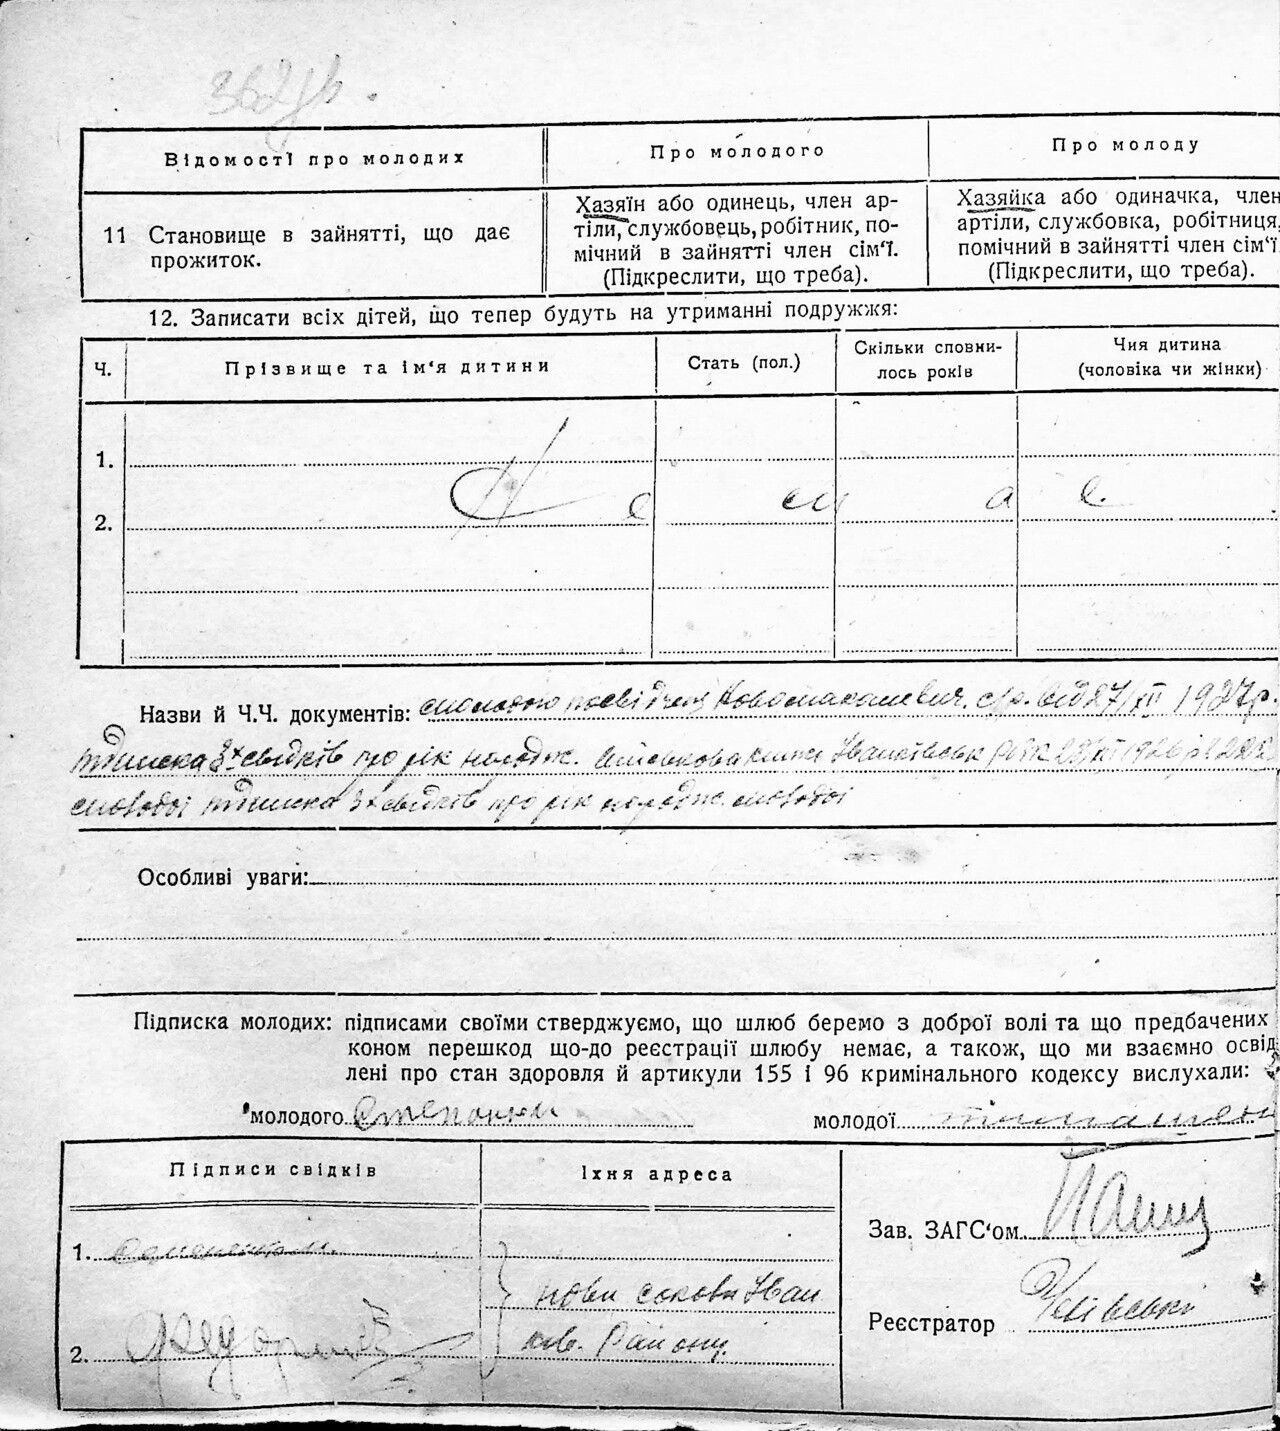 362
Відомості про молодих
Про молодого
Про молоду
11 Становище в зайнятті, що дає
прожиток.
Хазяїн або одинець, член ар-
тіли, службовець, робітник, по-
мічний в зайнятті член сім'ї.
(Підкреслити, що треба).
Хазяйка або одиначка, член
артіли, службовка, робітниця,
помічний в зайнятті член сім'ї.
(Підкреслити, що треба).
12. Записати всіх дітей, що тепер будуть на утриманні подружжя:
Ч.
Прізвище та ім'я дитини
Стать (пол.)
Скільки сповни-
лось років
Чия дитина
(чоловіка чи жінки)
1.
2.
Не має
Назви й Ч.Ч. документів: молодого від 27/XII 1927р.
підписка 3х свідків про рік народж. 1926р.
молодої підписка 3х свідків про рік народж. молодої
Особливі уваги:
Підписка молодих: підписами своїми стверджуємо, що шлюб беремо з доброї волі та що предбачених
коном перешкод що-до реєстрації шлюбу немає, а також, що ми взаємно освід
лені про стан здоровля й артикули 155 і 96 кримінального кодексу вислухали:
молодого
молодої
Підписи свідків
Їхня адреса
1.
2.
Району
Зав. ЗАГС'ом
Реєстратор